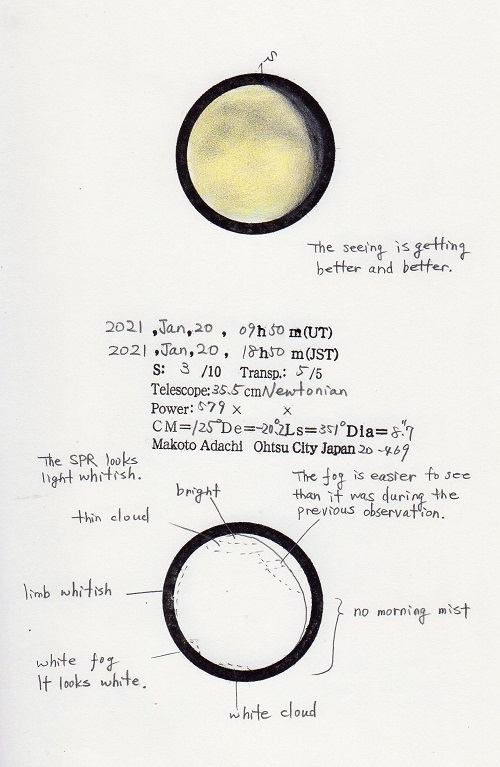 S
The seeing is getting
better and better.
2021 , Jan, 20 , 09h50 m(UT)
2021 , Jan, 20 , 18h50 m(JST)
S: 3 /10 Transp.: 5/5
Telescope: 35.5 cm Newtonian
Power: 579 × ×
CM=125° De=-20.°2 Ls=351° Dia=8."7
Makoto Adachi Ohtsu City Japan 20-469
The SPR looks
light whitish.
The fog is easier to see
than it was during the
previous observation.
bright
thin cloud
limb whitish
no morning mist
white fog
It looks white.
white cloud